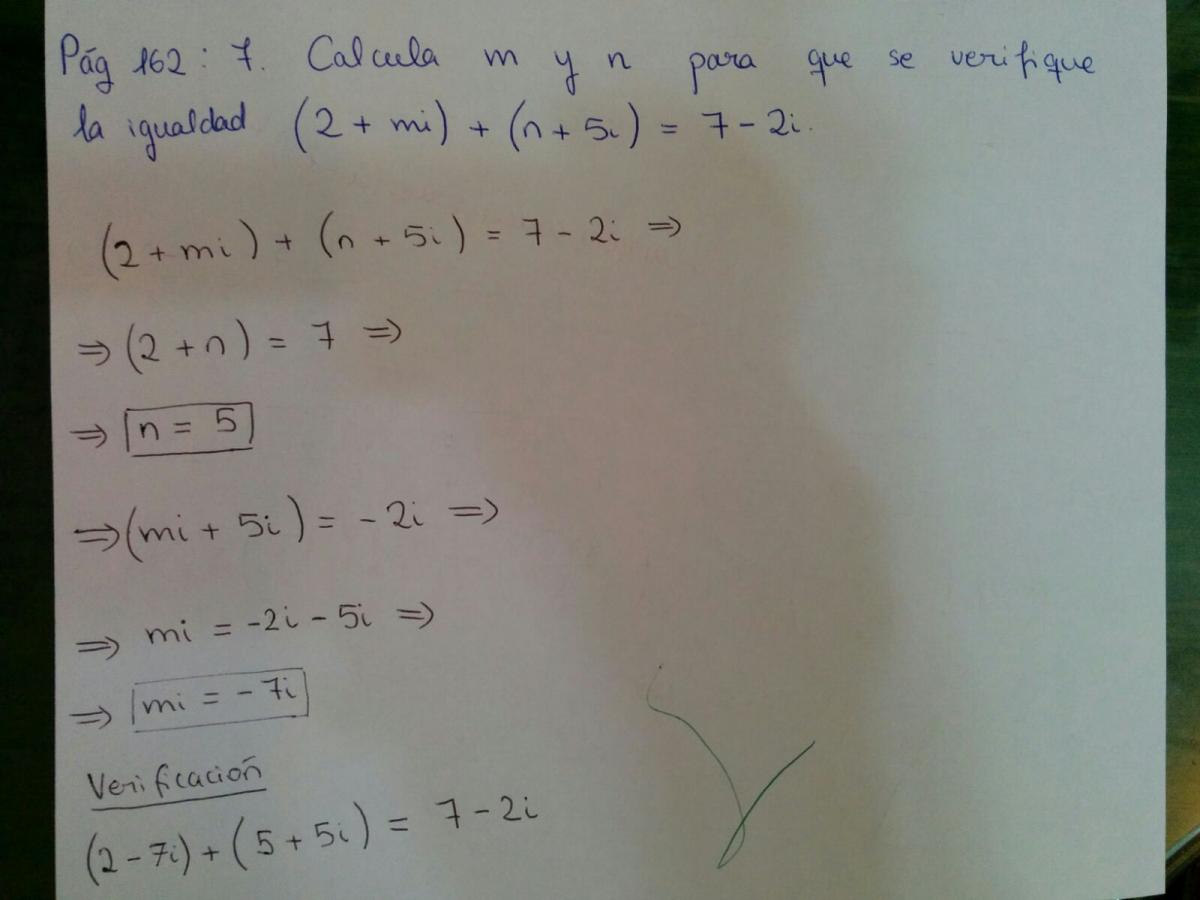 Pág 162: 7. Calcula m y n para que se verifique
la igualdad (2 + mi) + (n + 5i) = 7 - 2i.
(2 + mi) + (n + 5i) = 7 - 2i ⇒
⇒ (2 + n) = 7 ⇒
⇒ n = 5
⇒ (mi + 5i) = - 2i ⇒
⇒ mi = -2i - 5i ⇒
⇒ mi = - 7i
Verificación
(2 - 7i) + (5 + 5i) = 7 - 2i